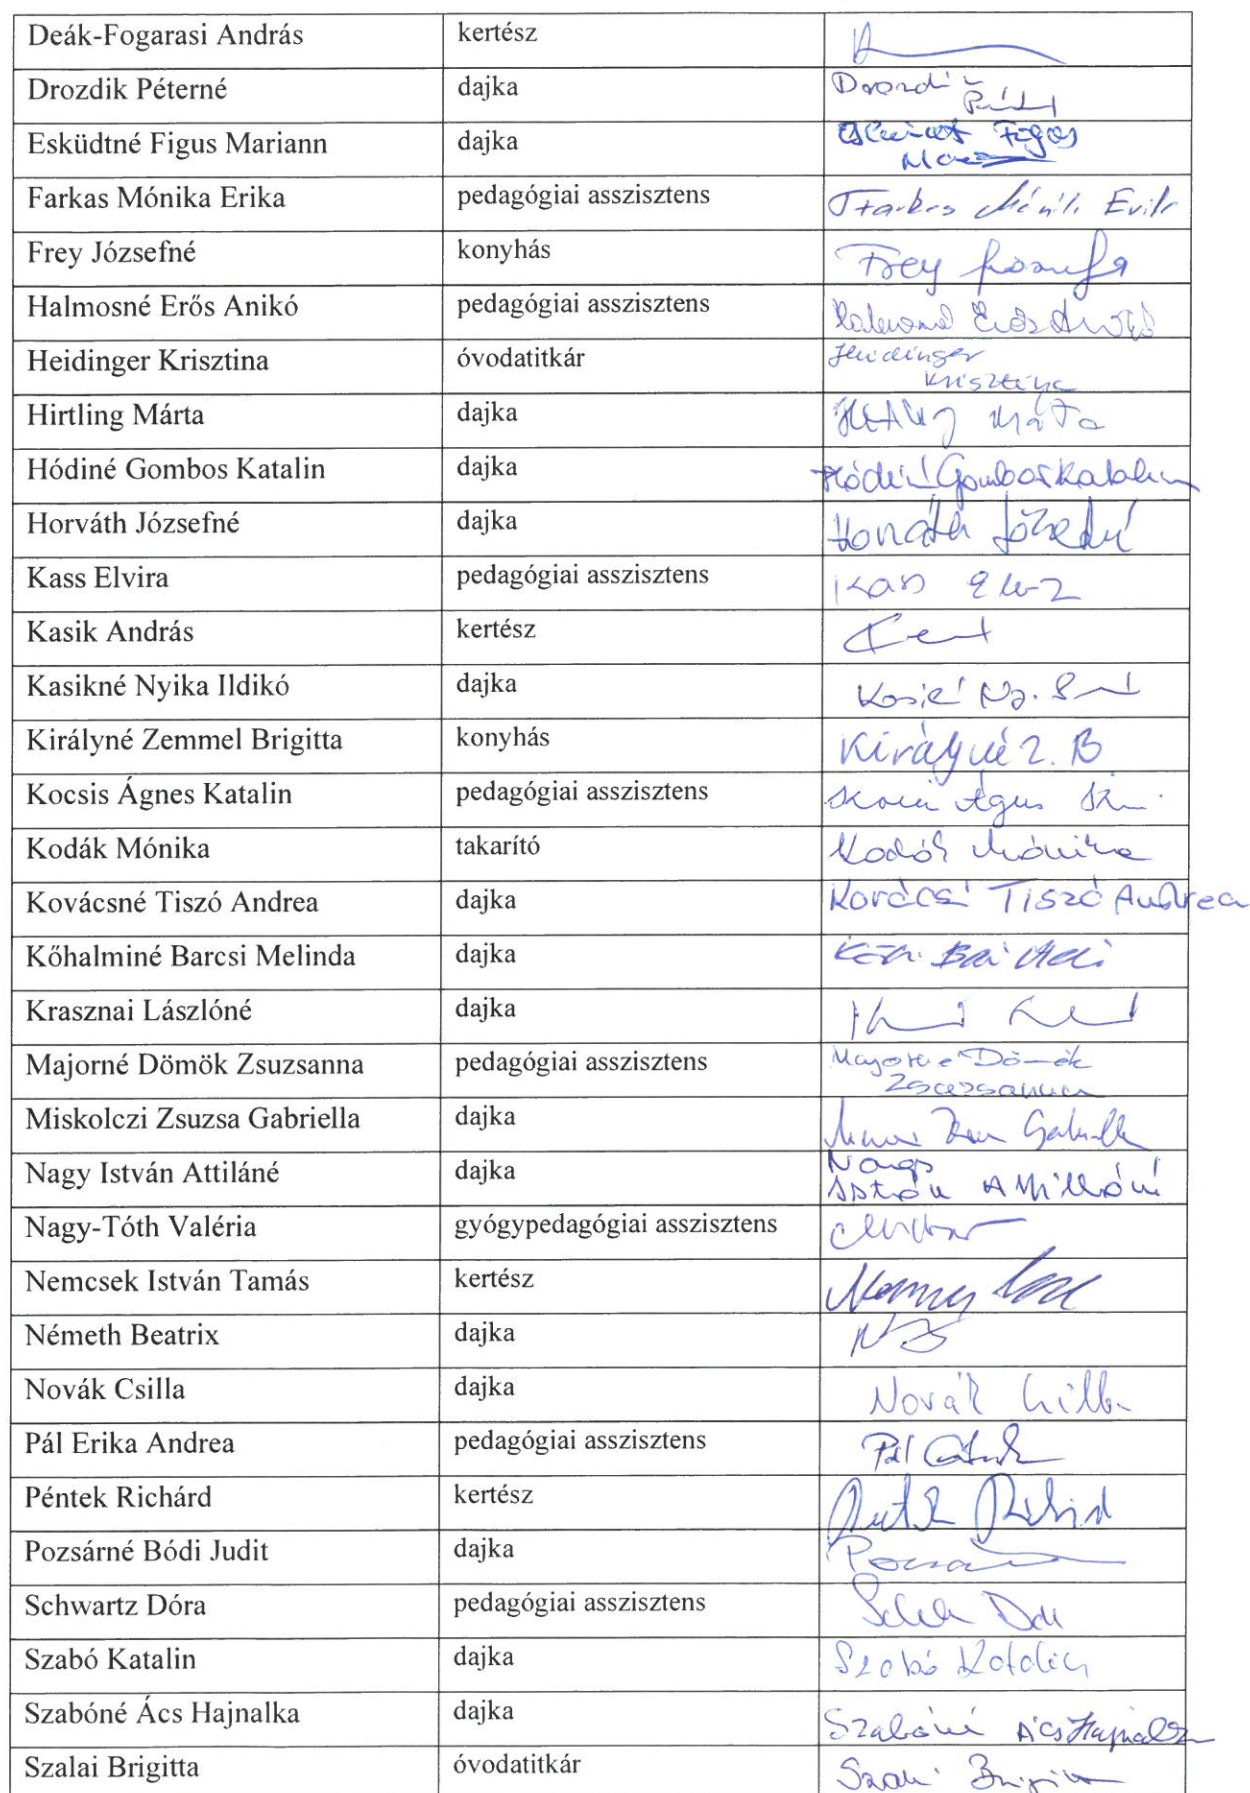 Deák-Fogarasi András kertész
Drozdik Péterné dajka Drozdi
Esküdtné Figus Mariann dajka
Farkas Mónika Erika pedagógiai asszisztens Farkas Erik
Frey Józsefné konyhás Frey
Halmosné Erős Anikó pedagógiai asszisztens Erős Anikó
Heidinger Krisztina óvodatitkár Heidinger
Krisztina
Hirtling Márta dajka Márta
Hódiné Gombos Katalin dajka Hódiné Gombos Katalin
Horváth Józsefné dajka Horváth Józsefné
Kass Elvira pedagógiai asszisztens Kass
Kasik András kertész
Kasikné Nyika Ildikó dajka
Királyné Zemmel Brigitta konyhás Királyné Z. B
Kocsis Ágnes Katalin pedagógiai asszisztens Ágnes
Kodák Mónika takarító Kodák Mónika
Kovácsné Tiszó Andrea dajka Kovácsé Tiszó Andrea
Kőhalminé Barcsi Melinda dajka
Krasznai Lászlóné dajka
Majorné Dömök Zsuzsanna pedagógiai asszisztens Majorné Dömök
Zsuzsanna
Miskolczi Zsuzsa Gabriella dajka
Nagy István Attiláné dajka Nagy
István Attiláné
Nagy-Tóth Valéria gyógypedagógiai asszisztens
Nemcsek István Tamás kertész
Németh Beatrix dajka
Novák Csilla dajka Novák Csilla
Pál Erika Andrea pedagógiai asszisztens Pál
Péntek Richárd kertész
Pozsárné Bódi Judit dajka
Schwartz Dóra pedagógiai asszisztens
Szabó Katalin dajka Szabó Katalin
Szabóné Ács Hajnalka dajka Szabóné Ács Hajnalka
Szalai Brigitta óvodatitkár